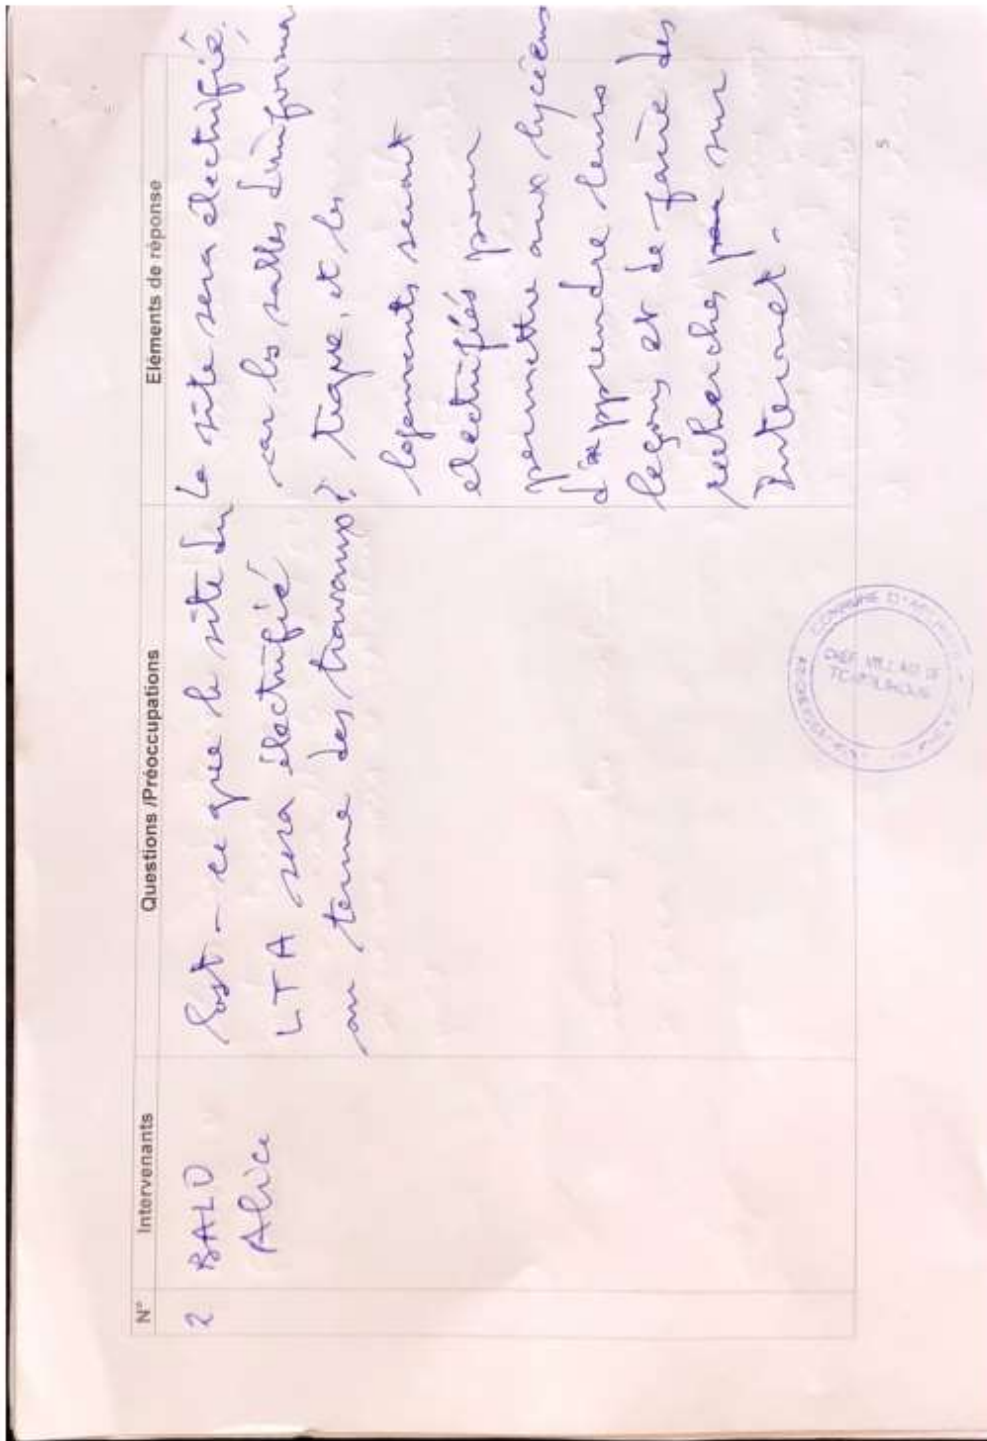 N° Intervenants Questions /Préoccupations Eléments de réponse
2
BALO
Alice
Est-ce que le site du
LTA sera électrifié
au terme des travaux?
Le site sera électrifié,
car les salles d'informa
tique, et les
logements seront
électrifiés pour
permettre aux lycéens
d'apprendre leurs
leçons et de faire des
recherches sur
Internet.
CHEF VILLAGE DE
5